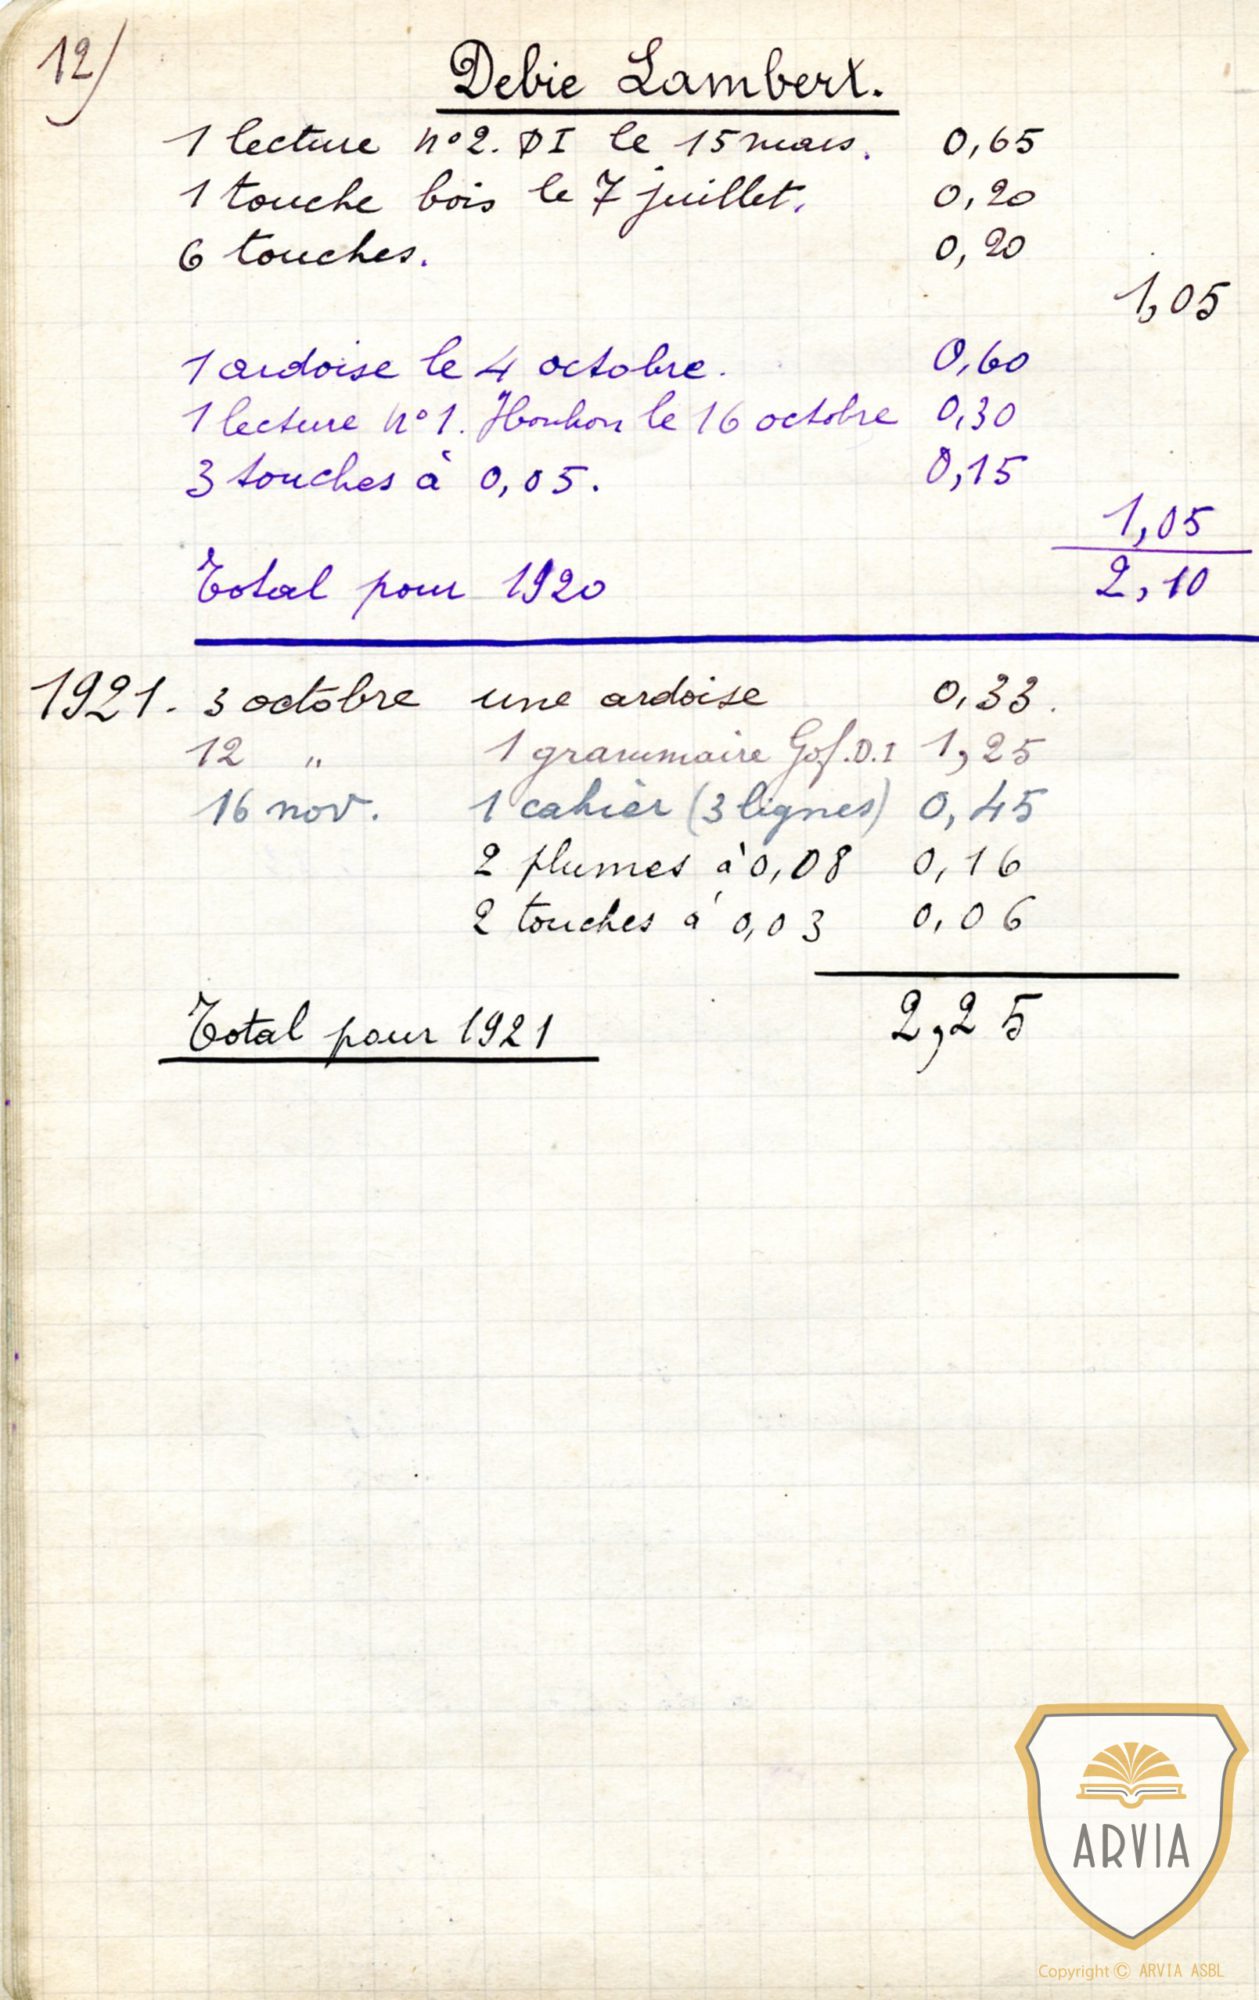 12)
Debie Lambert.
1 lecture n°2. DI le 15 mars. 0,65
1 touche bois le 7 juillet. 0,20
6 touches. 0,20
1,05
1 ardoise le 4 octobre. 0,60
1 lecture n°1. le 16 octobre 0,30
3 touches à 0,05. 0,15
1,05
Total pour 1920 2,10
1921. 3 octobre une ardoise 0,33.
12 " 1 grammaire Gof. D.I 1,25
16 nov. 1 cahier (3 lignes) 0,45
2 plumes à 0,08 0,16
2 touches à 0,03 0,06
Total pour 1921 2,25
ARVIA
Copyright © ARVIA ASBL